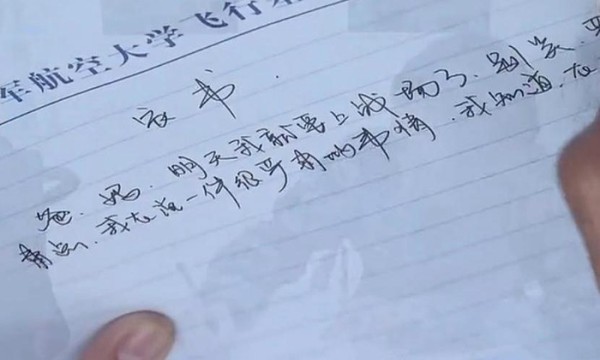 军航空大学飞行基
家书
爸、妈、明天我就要上战场了。别哭、
着急、我在说一件很严肃的事情。我知道、在